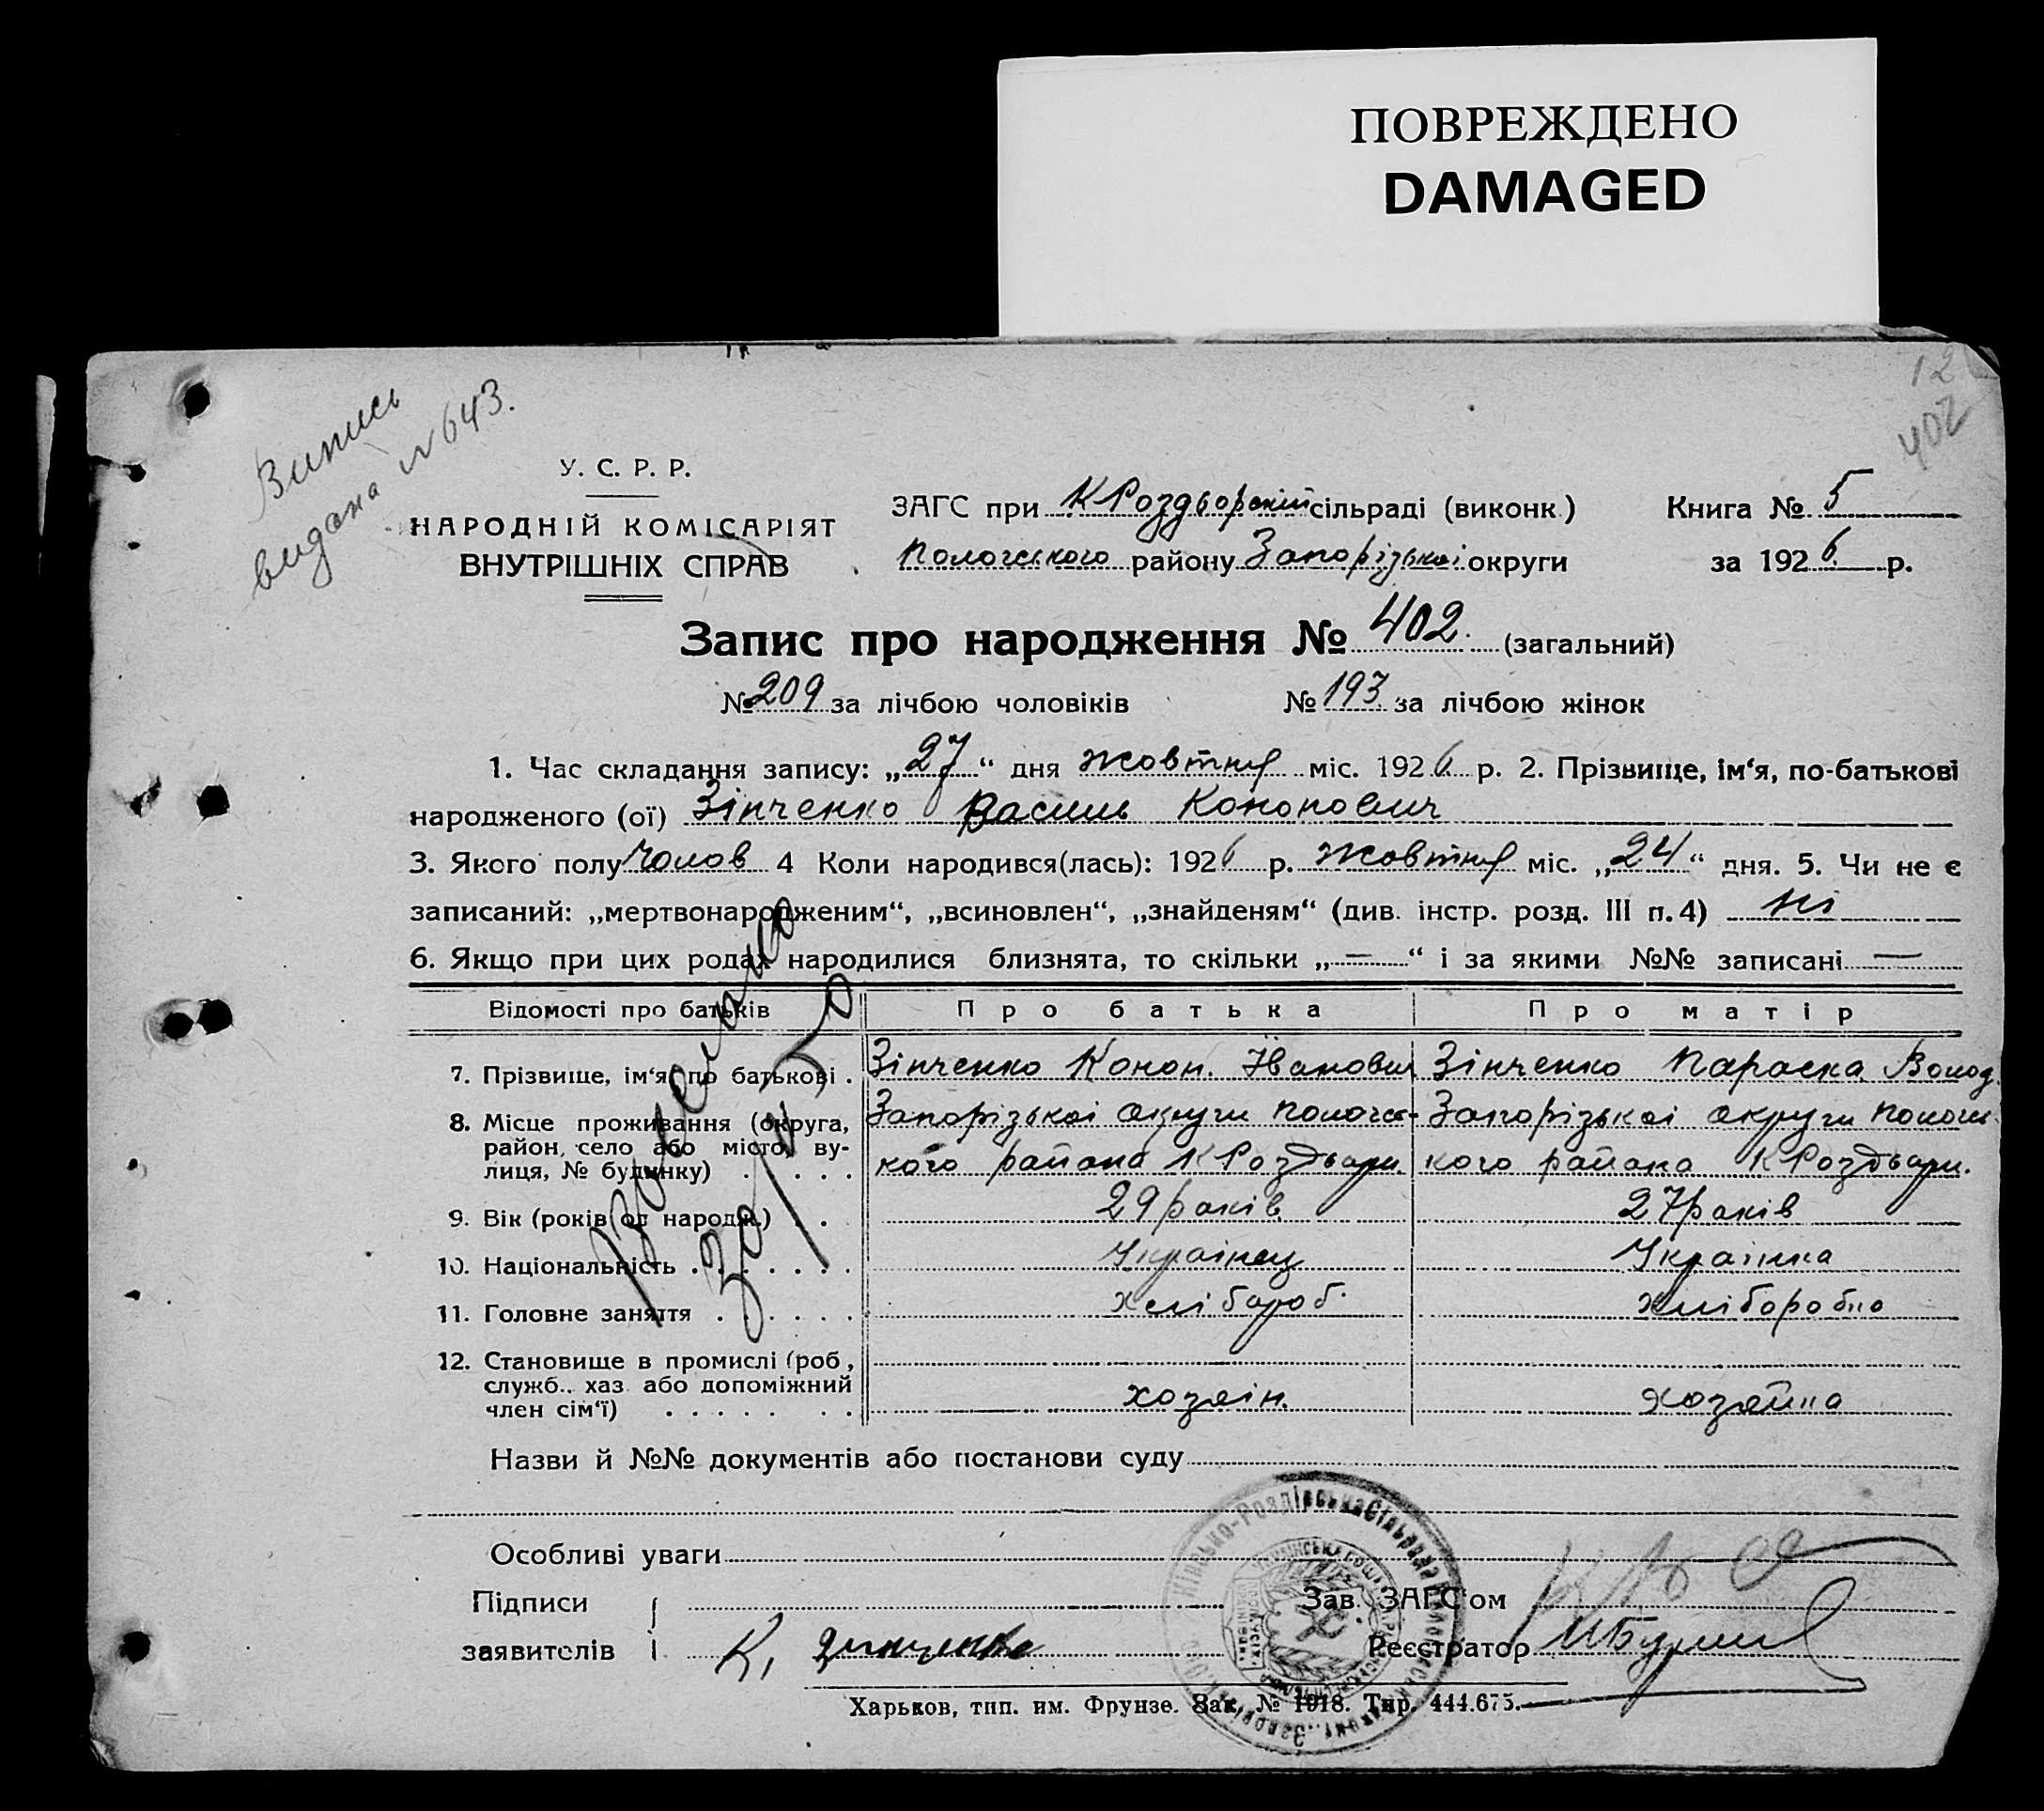 ПОВРЕЖДЕНО
DAMAGED
12
402
Випись
видана N 643.
У. С. Р. Р.
НАРОДНІЙ КОМІСАРІЯТ
ВНУТРІШНІХ СПРАВ
ЗАГС при К Роздворській сільраді (виконк.)
Пологського району Запорізькоі округи
Книга № 5
за 1926 р.
Запис про народження № 402. (загальний)
№ 209 за лічбою чоловіків № 193 за лічбою жінок
1. Час складання запису: „27“ дня жовтня міс. 1926 р. 2. Прізвище, ім‘я, по-батькові
народженого (ої) Зінченко Василь Кононович
3. Якого полу Чолов 4 Коли народився(лась): 1926 р. жовтня міс. „24“ дня. 5. Чи не є
записаний: „мертвонародженим“, „всиновлен“, „знайденям“ (див. інстр. розд. III п. 4) ні
6. Якщо при цих родах народилися близнята, то скільки „—“ і за якими №№ записані —
Відомості про батьків Про батька Про матір
7. Прізвище, ім‘я, по батькові . Зінченко Конон. Іванович Зінченко Параска Волод.
8. Місце проживання (округа, Запорізькоі округи Пологсь- Запорізькоі округи Пологсь-
район, село або місто, ву- кого района К Роздвори кого района К Роздвори.
лиця, № будинку) . . . .
9. Вік (років од народж.) . . 29 років 27 років
10. Національність . . . . . . . Українец Українка
11. Головне заняття . . . . . . хлібороб. хліборобка
12. Становище в промислі (роб.,
служб., хаз. або допоміжний
член сім‘ї) . . . . . . . хозяін. хозяйка
Назви й №№ документів або постанови суду
Особливі уваги
Підписи
заявителів К. Зинченко
Зав. ЗАГС‘ом
Реєстратор
Харьков, тип. им. Фрунзе. Зак. № 1918. Тир. 444.675.